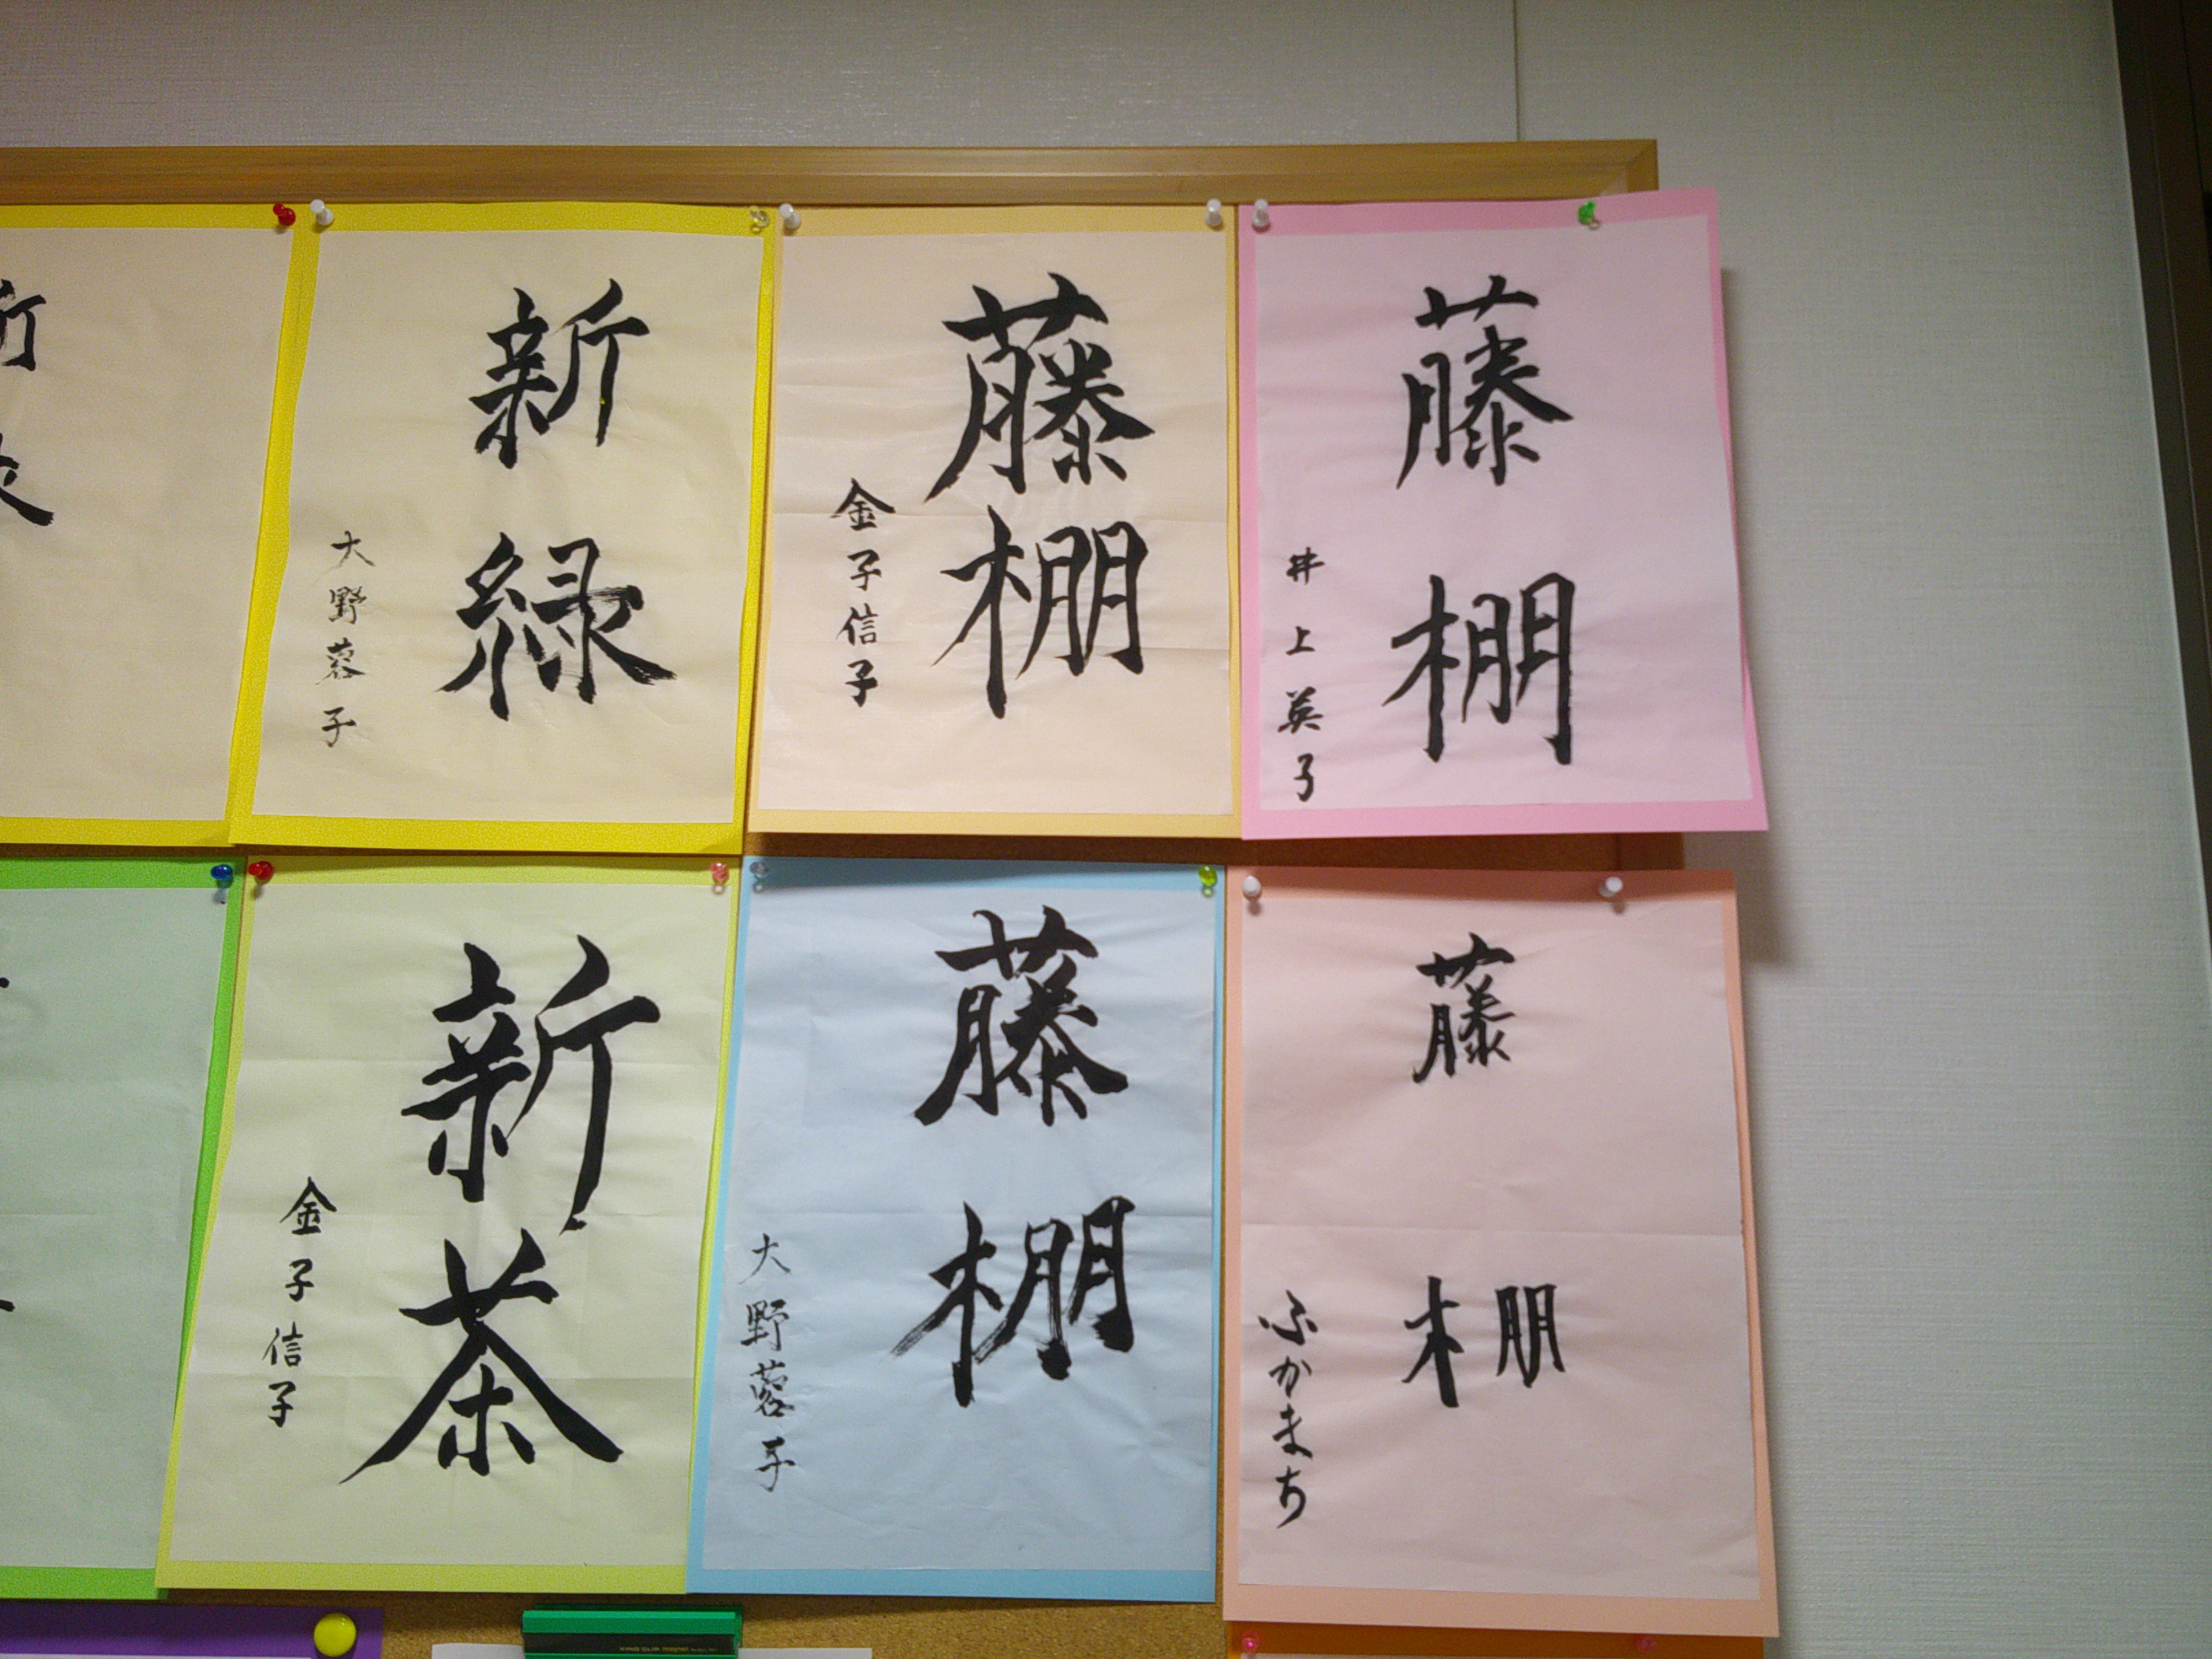 藤棚
井上英子
藤棚
金子信子
新緑
大野蓉子
新
藤棚
ふかまち
藤棚
大野蓉子
新茶
金子信子